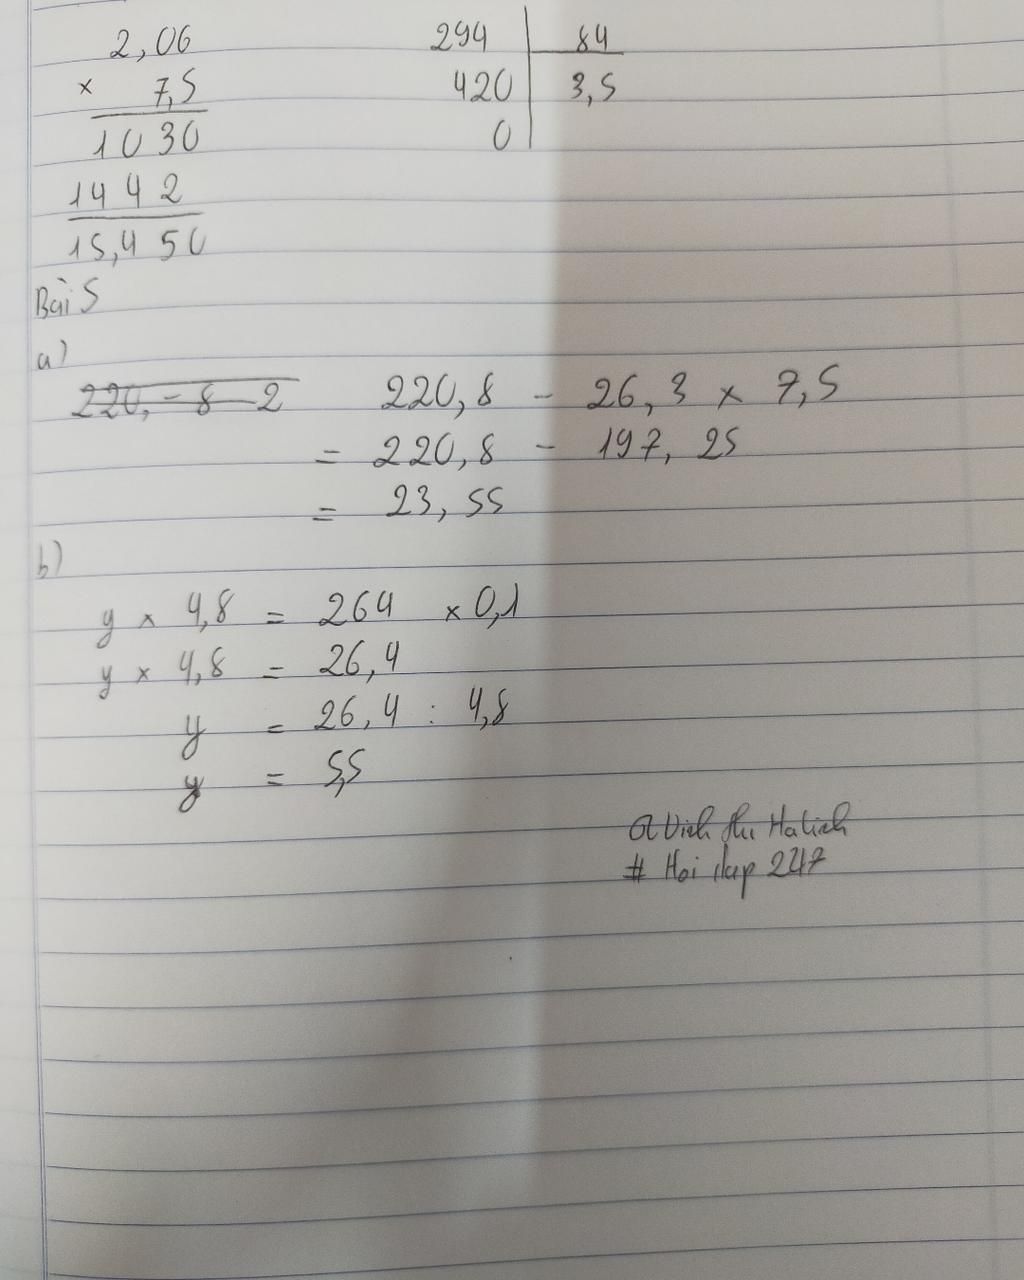 2,06
× 7,5
1030
1442
15,450
294 84
420 3,5
0
Bài 5
a)
220,8 - 26,3 × 7,5
= 220,8 - 197,25
= 23,55
b)
y × 4,8 = 264 × 0,1
y × 4,8 = 26,4
y = 26,4 : 4,8
y = 5,5
# Hoi dap 247